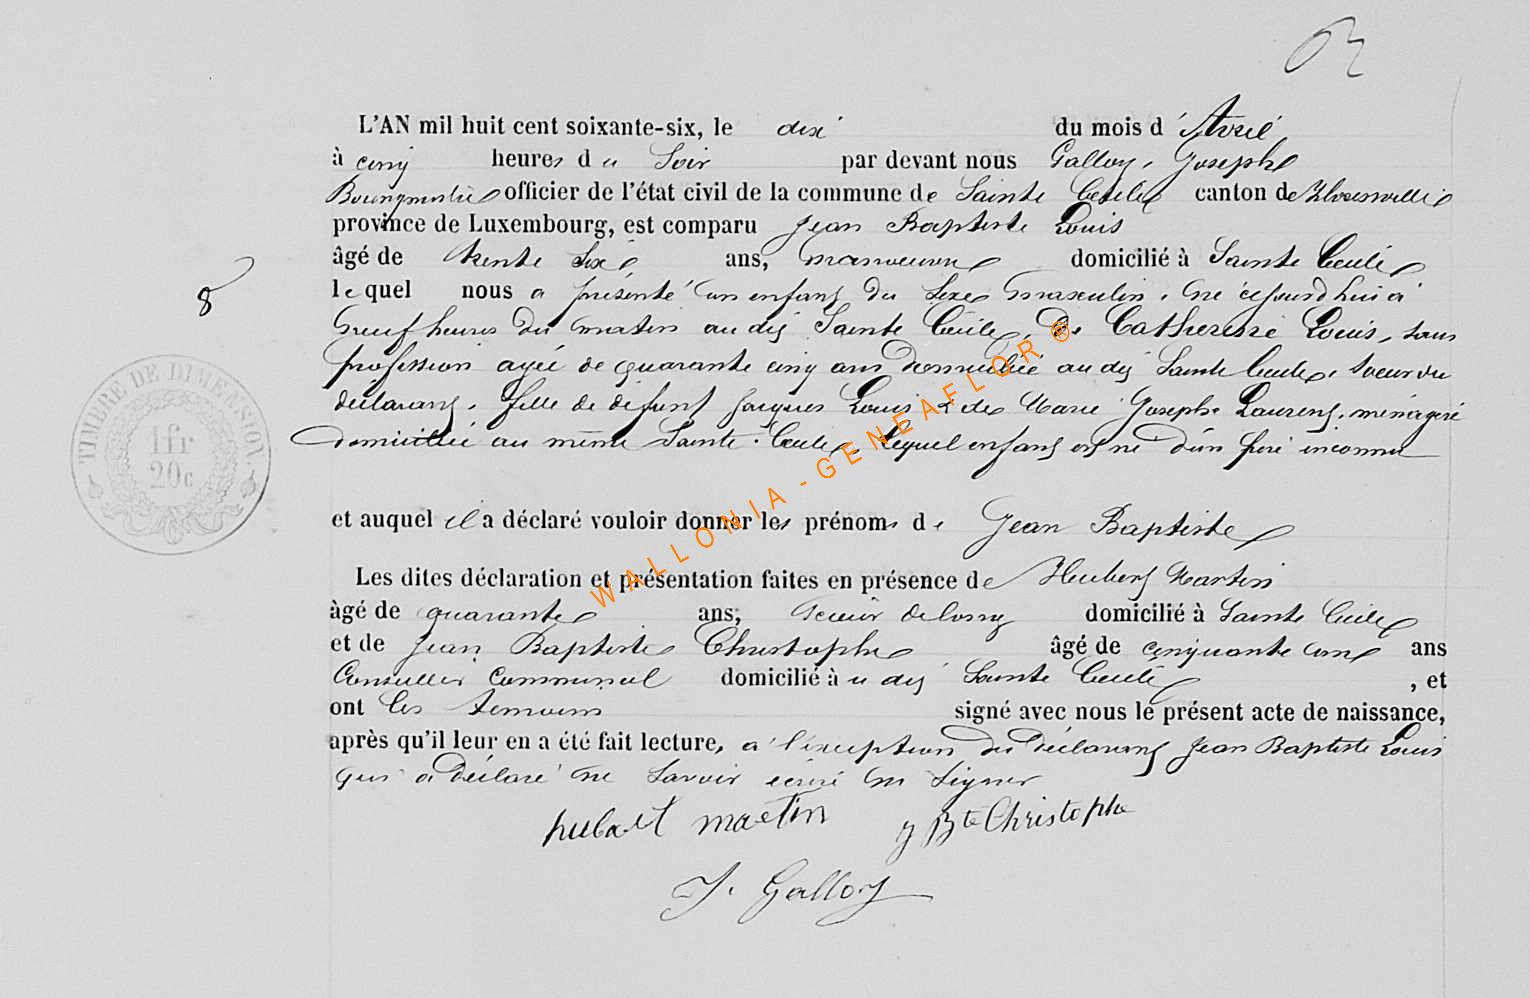 L'AN mil huit cent soixante-six, le dix du mois d'Avril
à cinq heures du Soir par devant nous Galloy, Joseph
Bourgmestre officier de l'état civil de la commune de Sainte Cécile canton de
province de Luxembourg, est comparu Jean Baptiste Louis
âgé de trente Six ans, manoeuvre domicilié à Sainte Cécile
8
lequel nous a présenté un enfant du Sexe masculin, né cejourd'hui à
neuf heures du matin au dit Sainte Cécile, de Catherine Louis, sans
profession agée de quarante cinq ans domiciliée au dit Sainte Cécile, Soeur du
déclarant, fille de défunt Jacques Louis & de Marie Joseph Laurent, ménagère
domiciliée au même Sainte-Cécile, Lequel enfant est né d'un père inconnu
TIMBRE DE DIMENSION.
1 fr
20 c
et auquel il a déclaré vouloir donner les prénoms de Jean Baptiste
Les dites déclaration et présentation faites en présence de Hubert Martin
âgé de quarante ans, Scieur de long domicilié à Sainte Cécile
et de Jean Baptiste Christophe âgé de cinquante ans
Conseiller Communal domicilié à u dit Sainte Cécile, et
ont les témoins signé avec nous le présent acte de naissance,
après qu'il leur en a été fait lecture, à l'exception du Déclarant Jean Baptiste Louis
qui a Déclaré ne Savoir écrire ni Signer
hubert martin J Bte Christophe
J. Galloy
WALLONIA - GENEAFLOR ®